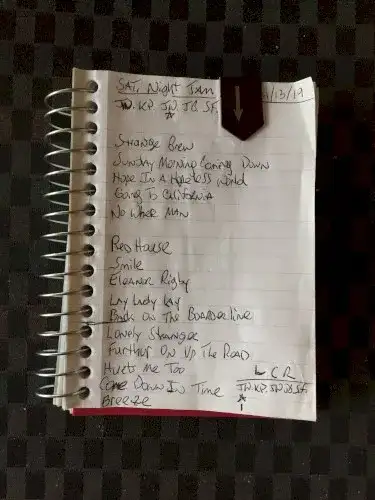 SAT. Night Jam
/13/19
JW. KP. JN. JB. SF.
A
STRANGE Brew
Sunday Morning Coming Down
Hope In A Hopeless World
Going To California
No Where Man
Red House
Smile
Eleanor Rigby
Lay Lady Lay
Back On The Boarderline
Lonely Stranger
Further On Up The Road
Hurts Me Too
Come Down In Time
Breeze
L C R
JW. KP. JN. JB. SF.
A